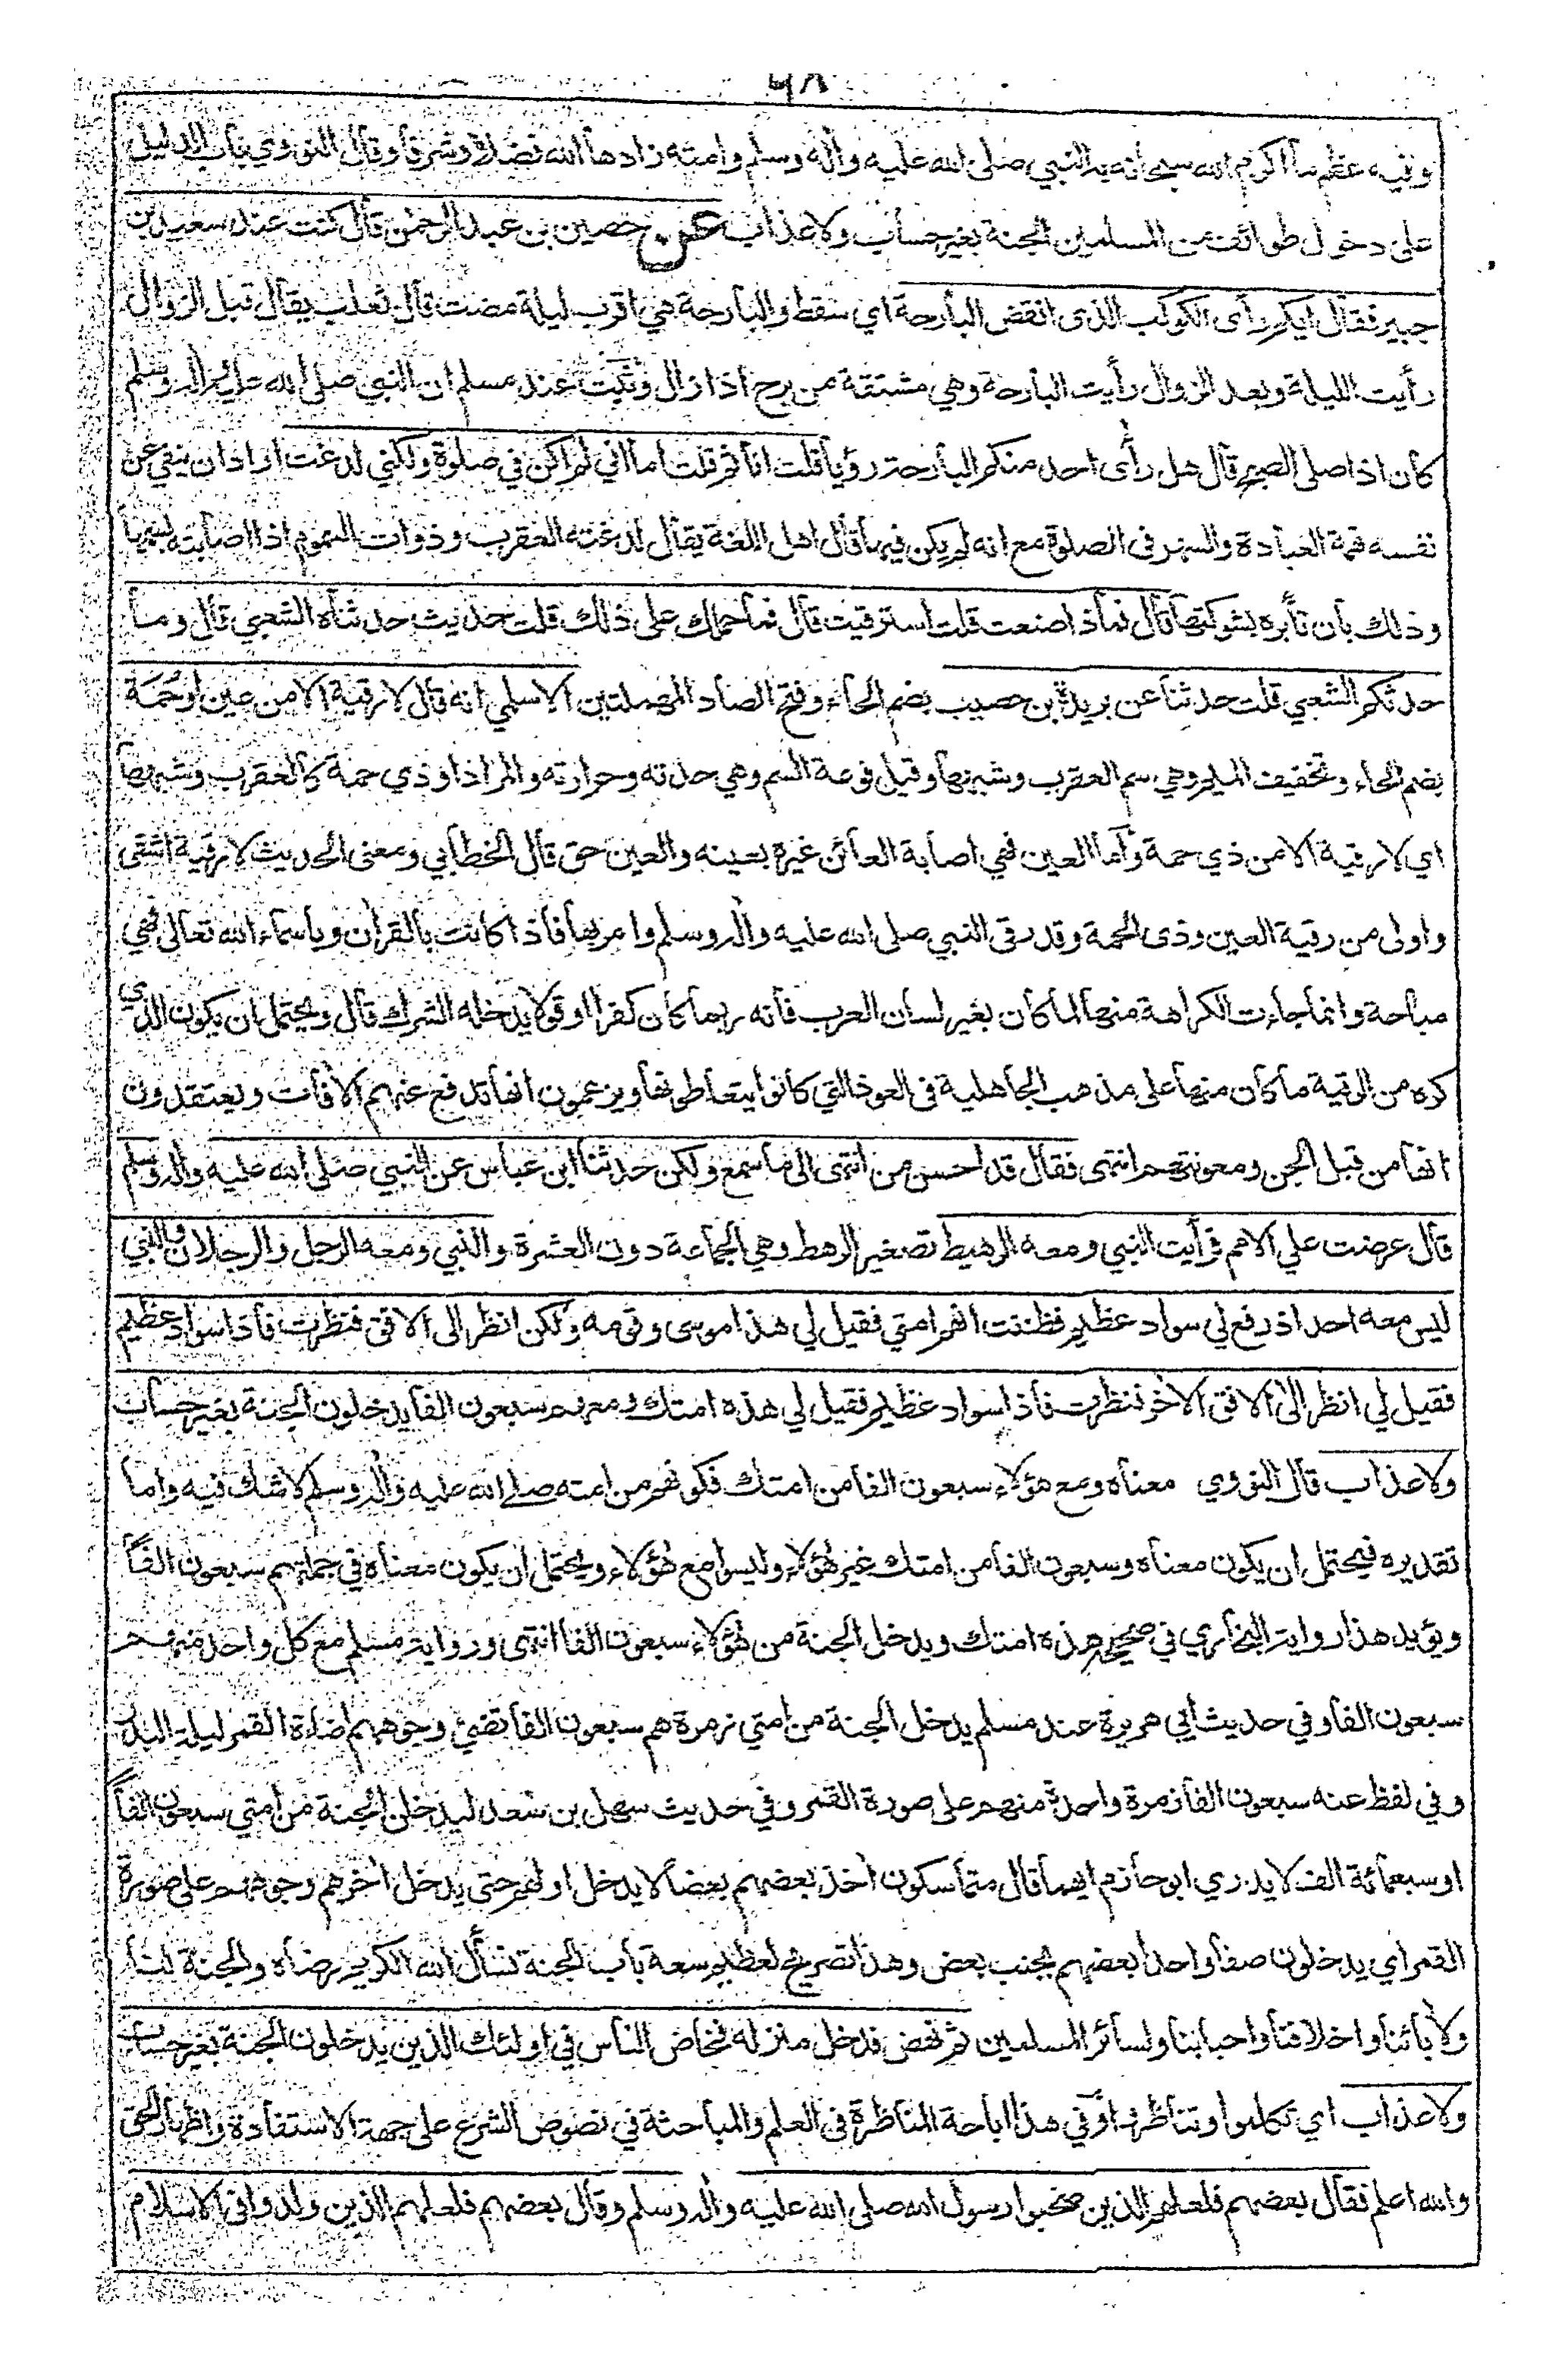 وفيه عظم ما اكرم الله سبحانه به النبي صلى الله عليه واٰله وسلم وامته زادها الله فضلا وشرفا وقال النووي باب الدليل
على دخول طوائف من المسلمين الجنة بغير حساب ولا عذاب عن حصين بن عبد الرحمٰن قال كنت عند سعيد بن
جبير فقال ايكم رأى الكوكب الذى انقض البارحة اي سقط والبارحة هي اقرب ليلة مضت قال ثعلب يقال قبل الزوال
رأيت الليلة وبعد الزوال رأيت البارحة وهي مشتقة من برح اذا زال وثبت عند مسلم ان النبي صلى الله عليه واٰله وسلم
كان اذا صلى الصبح قال هل رأى احد منكم البارحة رؤيا قلت انا ثم قلت اما اني لم اكن في صلوة ولكني لدغت اراد ان ينفي عن
نفسه تهمة العبادة والسهر فى الصلوة مع انه لم يكن فيها قال اهل اللغة يقال لدغته العقرب وذوات السموم اذا اصابته بسمها
وذلك بأن تأبره بشوكتها قال فماذا صنعت قلت استرقيت قال فما حملك على ذلك قلت حديث حدثناه الشعبي قال وما
حدثكم الشعبي قلت حدثنا عن بريدة بن حصيب بضم الحاء وفتح الصاد المهملتين الاسلمي انه قال لا رقية الا من عين او حُمَة
بضم الحاء وتخفيف الميم وهي سم العقرب وشبهها وقيل فوعة السم وهي حدته وحرارته والمراد او ذي حمة كالعقرب وشبهها
اي لا رقية الا من ذي حمة وأما العين فهي اصابة العائن غيره بعينه والعين حق قال الخطابي ومعنى الحديث لا رقية اشفى
واولى من رقية العين وذى الحمة وقد رقى النبي صلى الله عليه واٰله وسلم وامر بها فاذا كانت بالقراٰن وباسماء الله تعالى فهي
مباحة وانما جاءت الكراهة منها لما كان بغير لسان العرب فانه ربما كان كفرا او قولا يدخله الشرك قال ويحتمل ان يكون الذي
كره من الرقية ما كان منها على مذهب الجاهلية فى العوذ التي كانوا يتعاطونها ويزعمون انها تدفع عنهم الاٰفات ويعتقدون
انها من قبل الجن ومعونتهم انتهى فقال قد احسن من انتهى الى ما سمع ولكن حدثنا ابن عباس عن النبي صلى الله عليه واٰله وسلم
قال عرضت علي الامم فرأيت النبي ومعه الرهيط تصغير الرهط وهي الجماعة دون العشرة والنبي ومعه الرجل والرجلان والنبي
ليس معه احد اذ رفع لي سواد عظيم فظننت انهم امتي فقيل لي هذا موسى وقومه ولكن انظر الى الافق فنظرت فاذا سواد عظيم
فقيل لي انظر الى الافق الاٰخر فنظرت فاذا سواد عظيم فقيل لي هذه امتك ومعهم سبعون الفا يدخلون الجنة بغير حساب
ولا عذاب قال النووي معناه ومع هؤلاء سبعون الفا من امتك فكونهم من امته صلى الله عليه واٰله وسلم لا شك فيه واما
تقديره فيحتمل ان يكون معناه وسبعون الفا من امتك غير هٰؤلاء وليسوا مع هٰؤلاء ويحتمل ان يكون معناه في جملتهم سبعون الفاً
ويؤيد هذا رواية البخاري في صحيحه هذه امتك ويدخل الجنة من هٰؤلاء سبعون الفا انتهى ورواية مسلم مع كل واحد منهم
سبعون الفا وفي حديث ابي هريرة عند مسلم يدخل الجنة من امتي زمرة هم سبعون الفا تضئ وجوههم اضاءة القمر ليلة البدر
وفي لفظ عنه سبعون الفا زمرة واحدة منهم على صورة القمر وفي حديث سهل بن سعد ليدخلن الجنة من امتي سبعون الفاً
او سبعمائة الف لا يدري ابو حازم ايهما قال متماسكون اٰخذ بعضهم بعضا لا يدخل اولهم حتى يدخل اٰخرهم وجوههم على صورة
القمر اي يدخلون صفا واحدا بعضهم بجنب بعض وهذا تصريح لعظيم سعة باب الجنة نسأل الله الكريم رضاه والجنة لنا
ولاٰبائنا واخلافنا واحبابنا ولسائر المسلمين ثم نهض فدخل منزله فخاض الناس في اولئك الذين يدخلون الجنة بغير حساب
ولا عذاب اي تكلموا وتناظروا وفي هذا اباحة المناظرة فى العلم والمباحثة في نصوص الشرع على جهة الاستفادة واظهار الحق
والله اعلم فقال بعضهم فلعلهم الذين صحبوا رسول الله صلى الله عليه واٰله وسلم وقال بعضهم فلعلهم الذين ولدوا فى الاسلام